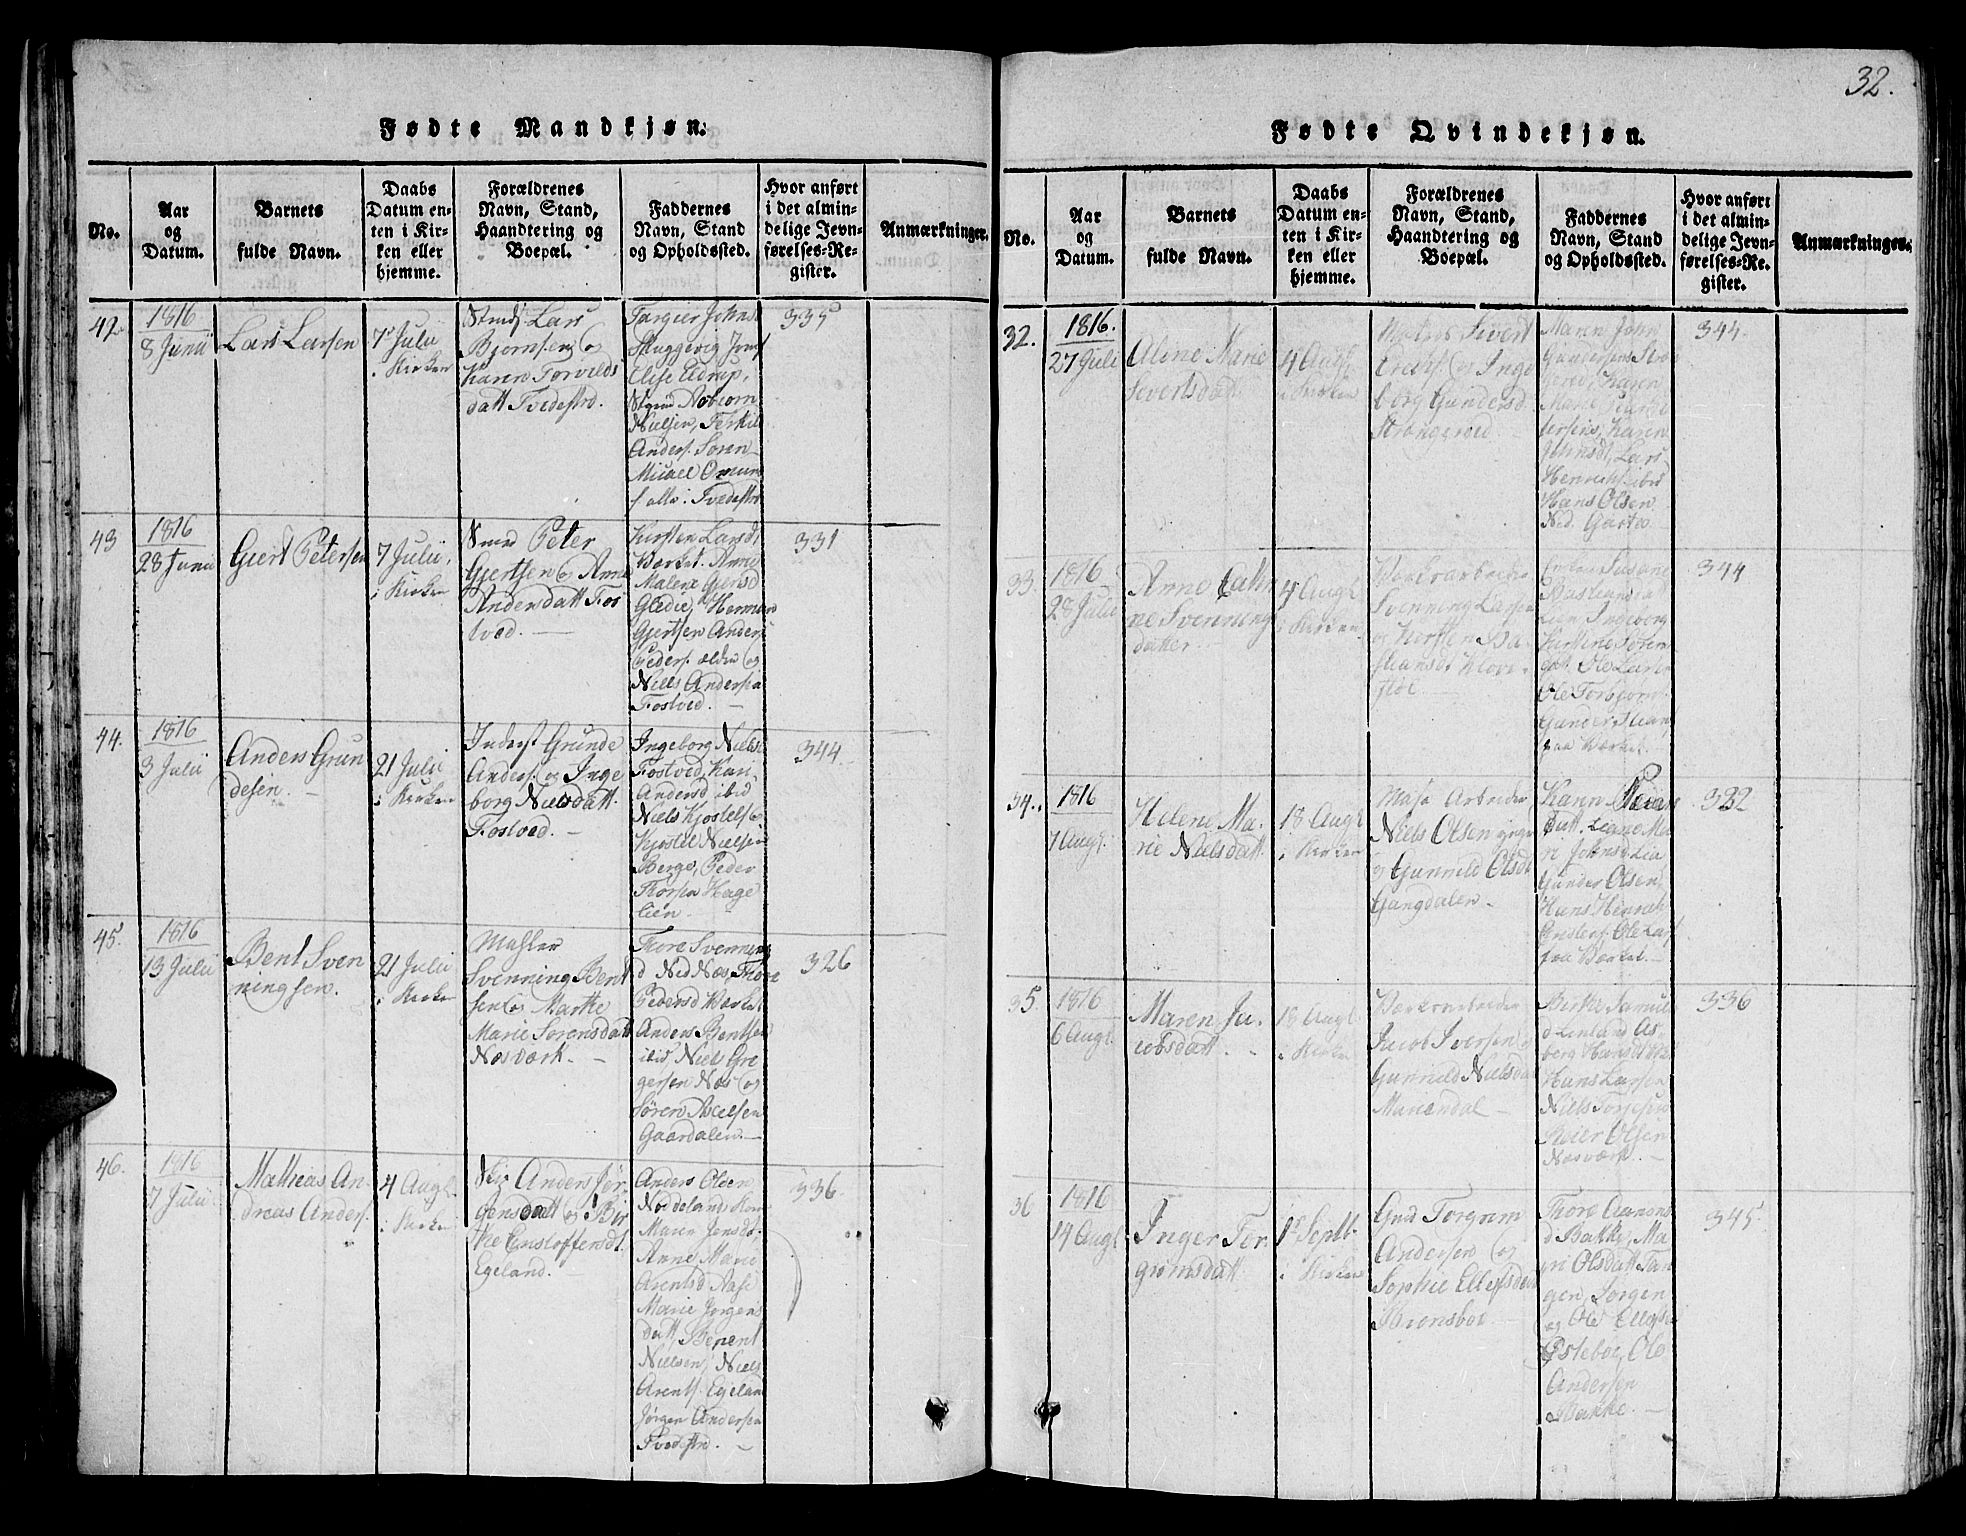 32.
Fødte Mandkjøn.
No.
Aar
og
Datum.
Barnets
fulde Navn.
Daabs
Datum en-
ten i Kir-
ken eller
hjemme.
Forældrenes
Navn, Stand,
Haandtering og
Boepæl.
Faddernes
Navn, Stand
og Opholdssted.
Hvor anført
i det almin-
delige Jevn-
førelses-Re-
gister.
Anmærkninger.
42
1816
8 Junii
Lars Larsen
7de Julii
i Kirken
Lars
Bjornsen og
Karen Torvilds
datt Tvedestrd.
Targier Johns
Jonsf
Elise Eldrup,
Nielsen, Terkil
Anders. Soren
Micael Omun
f alle i Tvedestrd
335
43
1816
28 Junii
Giert Petersen
7 Julii
i Kirken
Smed Peter
Gjertsen og Anne
Andersdatt Fos
tved.
Kirsten Larsd,
Værket. Anne
Malene Gjertsd
Gledie, Herman
Gjertsen Anders
Peders. ældre og
Niels Andersen
Fostved.
331
44.
1816
3 Julii
Anders Grun
desen.
21 Julii
i Kirken
Inderst Grunde
Anders. og Inge
borg Nielsdatt.
Fostved.
Ingeborg Nielsd
Fostved, Kari
Andersd ibid
Niels Kjostels og
Kjostel Nielsen
Berge, Peder
Thorsen Hage
lien.
344
45.
1816
13 Julii
Bent Sven
ningsen.
21 Julii
i Kirken
Mahler
Svenning Bent
sen og Marthe
Marie Sorensdatt
Næsværk.
Thore Svenning
d Ned Næs, Thore
Pedersd Værket
Anders Bentsen
ibid, Niels Gre
gersen Næs og
Søren Axelsen
Gaardalen.
326
46.
1816
7 Julii
Mathias An
dreas Anders.
4 Augl.
i Kirken
Anders Jør
gensdatt og Bir
the Cristoffersdt
Egeland.
Anders Olsen
Noddeland
Maren Jensd.
Anne Marie
Arentsd Aase
Marie Jorgens
datt, Berent
Nielsen, Niels
Arents. Egeland
Jørgen Andersen
Tvedestrd.
336
Fødte Qvindekjøn.
No.
Aar
og
Datum.
Barnets
fulde Navn.
Daabs
Datum en-
ten i Kir-
ken eller
hjemme.
Forældrenes
Navn, Stand,
Haandtering og
Boepæl.
Faddernes
Navn, Stand
og Opholdssted.
Hvor anført
i det almin-
delige Jevn-
førelses-Re-
gister.
Anmærkninger.
32.
1816.
27 Juli
Alene Marie
Sivertsdatt
4 Augl
i Kirken
Matros Sivert
og Inge
borg Gundersd
Strongereid
Maren John
Gundersens Stron
gereid, Karen
Marie
Karen
Johnsdt, Lars
Henrichs. ibid
Hans Olsen
Ned. Garta
344.
33.
1816
28 Julii
Anne Cathri
ne Svenning
datter
4 Augl
i Kirken
Værksarbeider
Svenning Larsen
og Kirsten Ba
stiansdt Klove
Susane
Bastiansdat
Lien Ingeborg
Kirstine Soren
datt. Ole Larsen
Ole Torbjorn
Gunder
paa Værket
344
34.
1816
7 Augl.
Helene Ma-
rie Nielsdatt.
18 Augl
i Kirken
Mass Arbeider
Niels Olsen yngre
og Gunnild Olsdt
Gangdalen
Karen
Datt. Liane Ma
ri Johnsd Lia
Gunder Olsen
Hans Henrich
Ole Lars
paa Værket
332
35.
1816
6 Augl.
Maren Ja-
cobsdatt.
18 Augl
i Kirken
Værksarbeider
Jacob Iversen og
Gunnild Nielsdatt
Mariendal
Berthe Samuels
d Lenland As
berg Hansdt
Hans Larsen
Niels Torjesen
Reier Olsen
Næsværk
336
36
1816
14 Augl
Inger Tor-
grimsdatt
1st Septb.
i Kirken
Gmd Torgrim
Andersen og
Sophie Ellefsdatt
Bronsboe
Thore Aanons
d Bakke, Ma
ri Olsdatt Tan
gen, Jorgen
og Ole Ellefsen
Østeboe, Ole
Andersen
Bakke.
345.